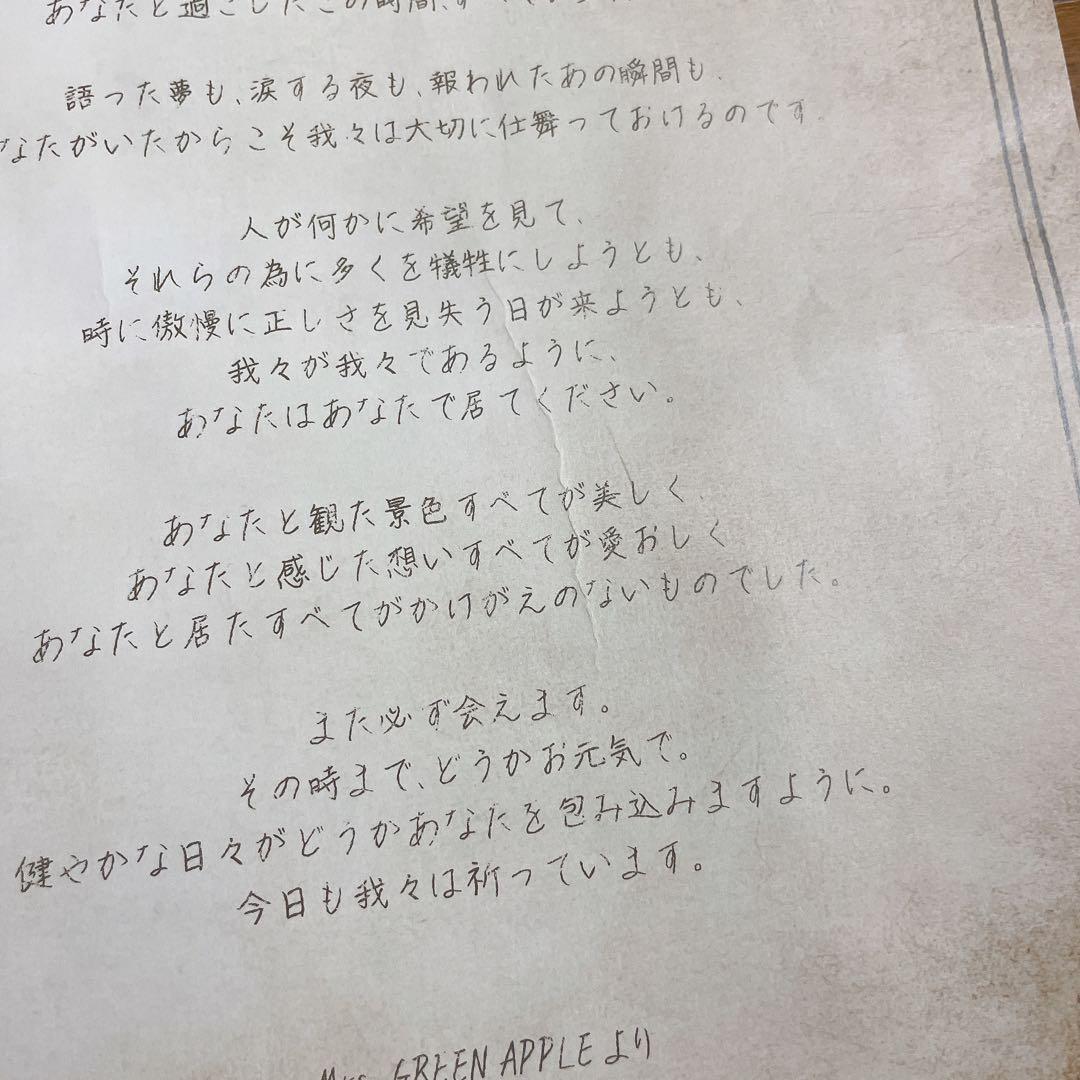 あなたと過ごしたこの時間、す
語った夢も、涙する夜も、報われたあの瞬間も、
なたがいたからこそ我々は大切に仕舞っておけるのです。
人が何かに希望を見て、
それらの為に多くを犠牲にしようとも、
時に傲慢に正しさを見失う日が来ようとも、
我々が我々であるように、
あなたはあなたで居てください。
あなたと観た景色すべてが美しく、
あなたと感じた想いすべてが愛おしく
あなたと居たすべてがかけがえのないものでした。
また必ず会えます。
その時まで、どうかお元気で。
健やかな日々がどうかあなたを包み込みますように。
今日も我々は祈っています。
Mrs. GREEN APPLEより